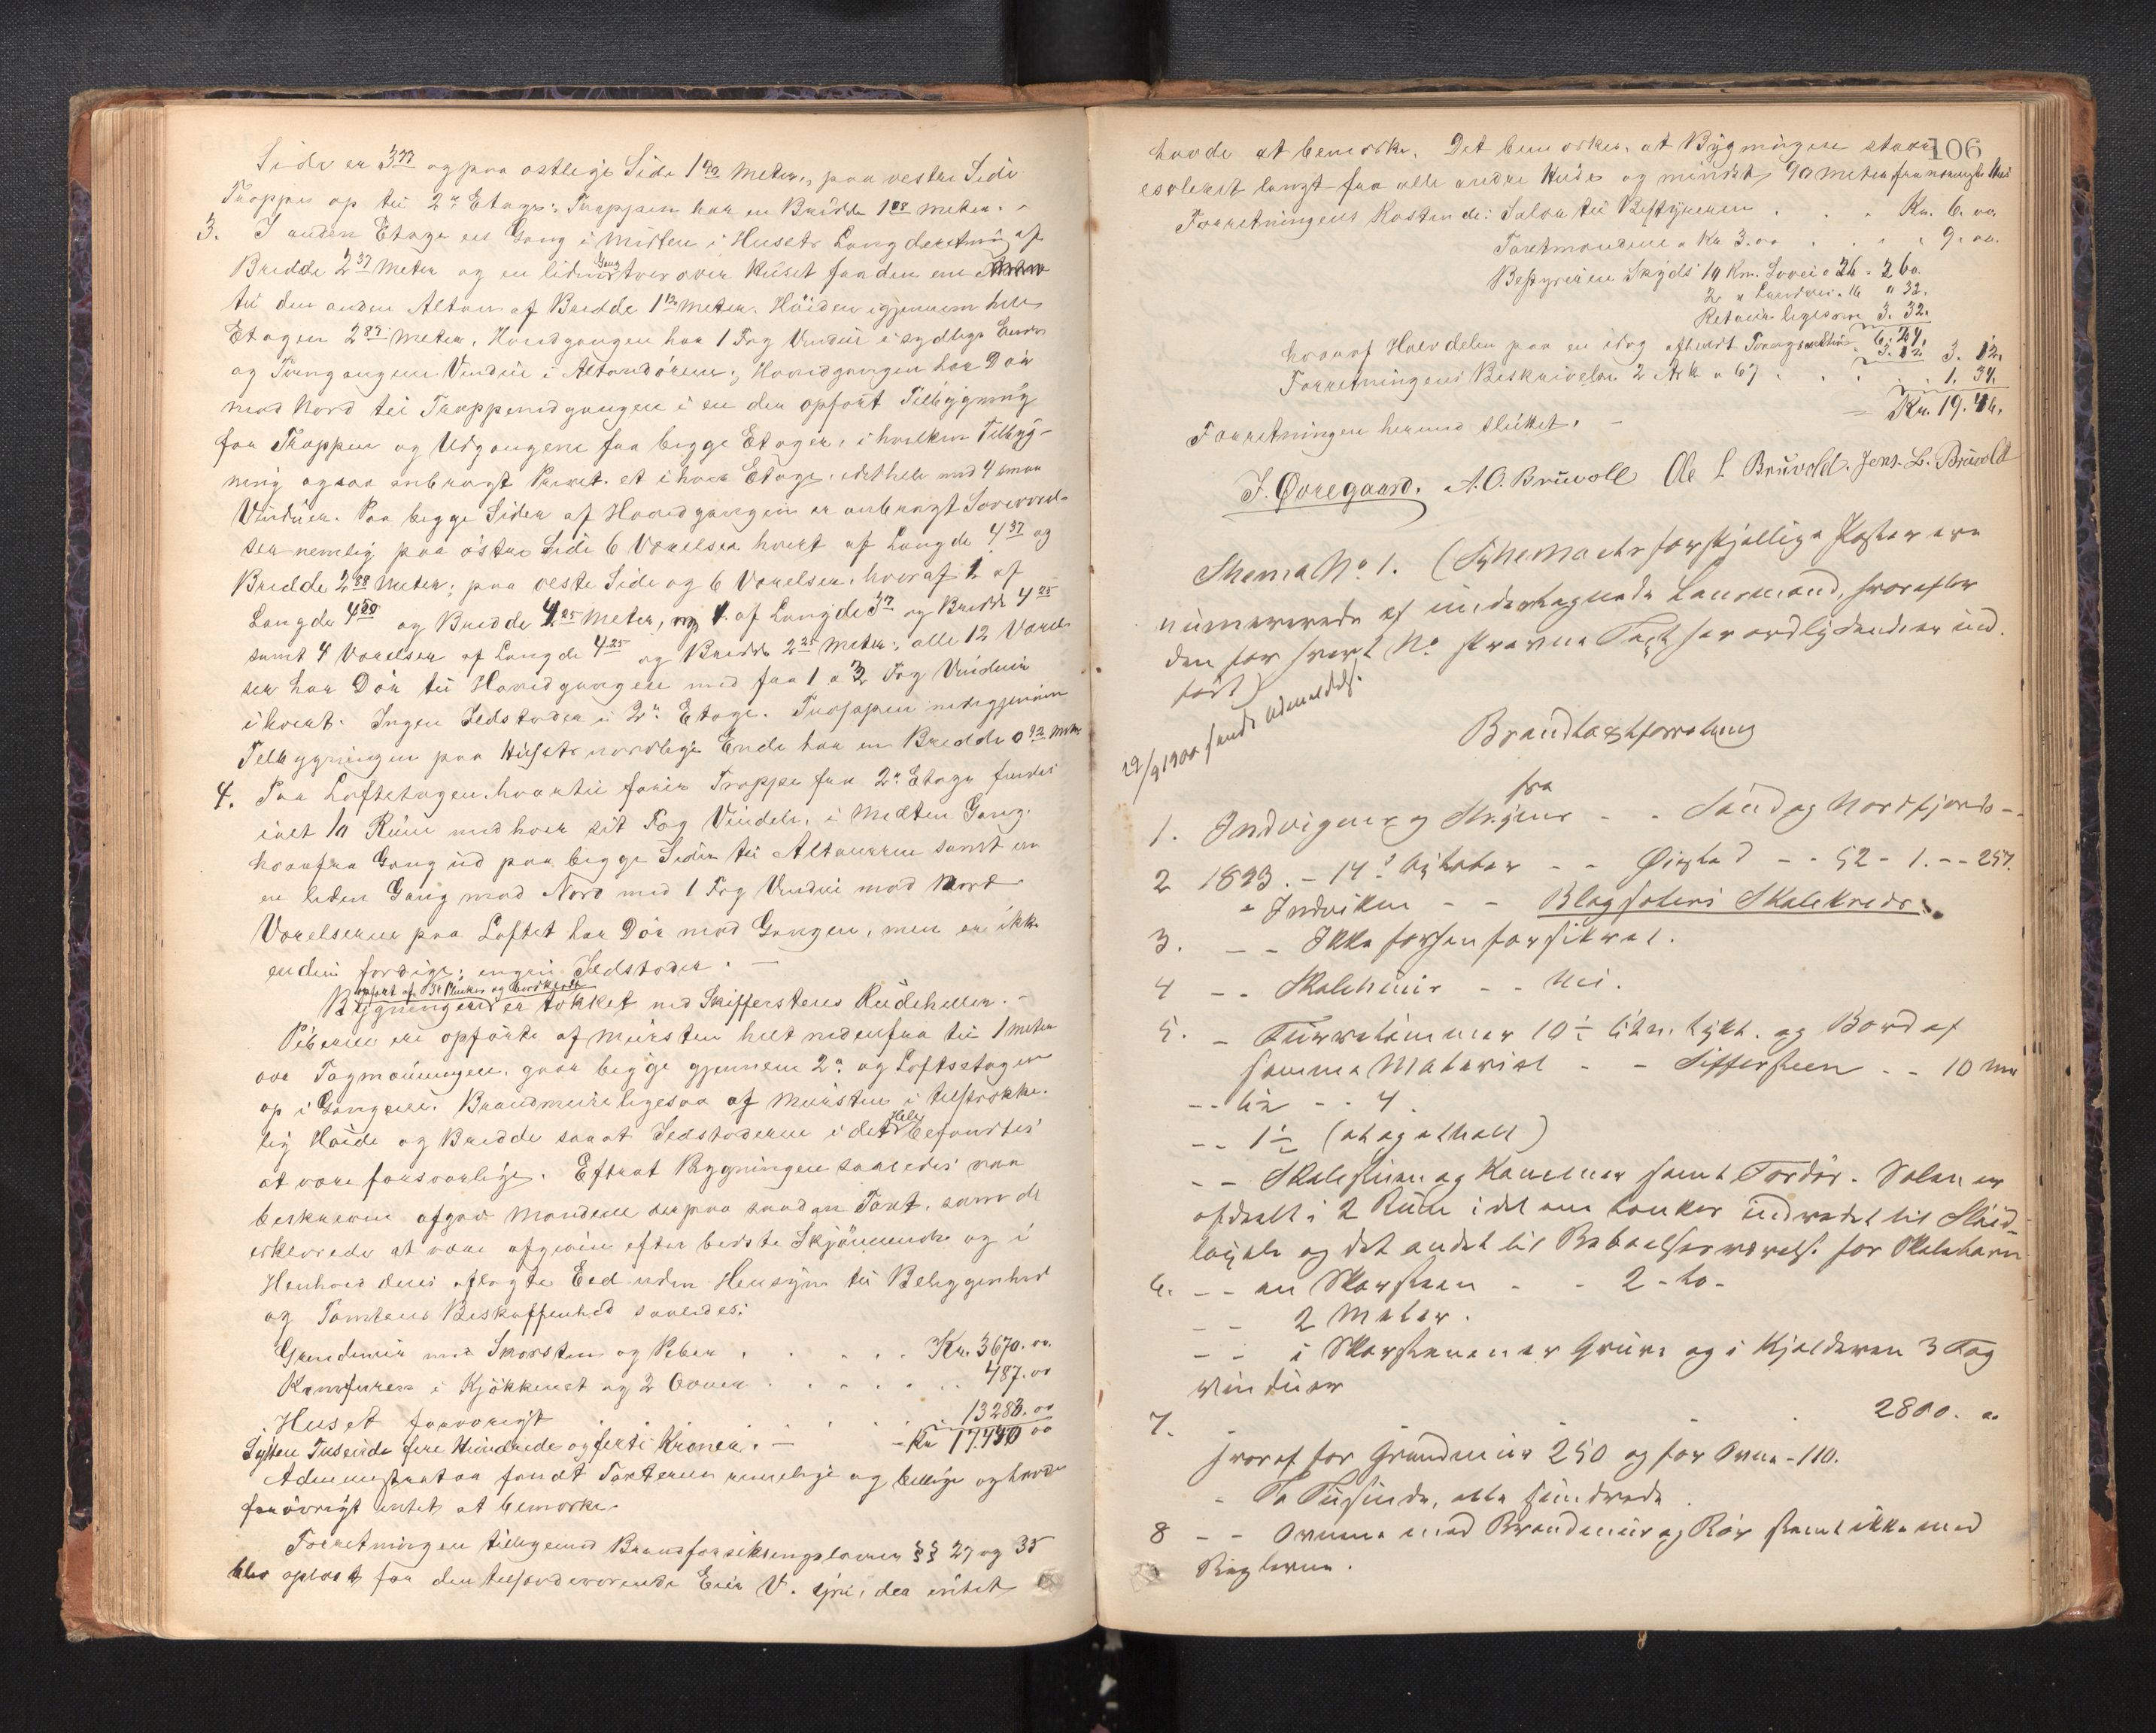 Side er 3 77 og paa østlige Side 1 90 Meter, paa vestre Side
Trappe op til 2n Etage: Trappen har en Bredde 1 08 Meter. -
3. I anden Etage en Gang i Midten i Husets Længderetning af
Bredde 2 37 Meter og en liden Gang tvers over Huset fra den ene
til den anden Altan af Bredde 1 12 Meter. Høiden igjennem hele
Etagen 2 89 Meter, Hovedgangen har 1 Fag Vindu i sydlige Ende
og Tvergangene Vindu i Altandørene; Hovedgangen har Dør
mod Nord til Trappenedgangen i en der opført Tilbygning
for Trappen og Udgangene fra begge Etager, i hvilken Tilbyg-
ning ogsaa anbragt Privet. et i hver Etage, det hele med 4 smaa
Vinduer. Paa begge Sider af Hovedgangen er anbragt Soveværel-
ser nemlig paa østre Side 6 Værelser hvert af Længde 4 37 og
Bredde 2 88 Meter; paa vestre Side og 6 Værelser, hvoraf 1 af
Længde 4 50 og Bredde 4 25 Meter, og 1 af Længde 3 17 og Bredde 4 25
samt 4 Værelser af Længde 4 25 og Bredde 2 25 Meter; alle 12 Værel-
ser har Dør til Hovedgangen med fra 1 a 3 Fag Vinduer
i hvert. Ingen Ildsteder i 2n Etage. Trappen nedigjennem
Tilbygningen paa Husets nordlige Ende har en Bredde 0 92 Meter
4. Paa Loftetagen, hvortil fører Trappe fra 2n Etage findes
ialt 10 Rum med hver sit Fag Vinduer, i Midten Gang,
hvorfra Gang ud paa begge Sider til Altanerne samt en
en liden Gang mod Nord med 1 Fag Vindu mod Nord
Værelserne paa Loftet har Dør mod Gangen, men er ikke
endnu færdige; ingen Ildsteder. -
opført af 3" Planker og bordklædt
Bygningen er tækket med Skifferstens Rudeheller. -
Piberne ere opførte af Mursten helt nedenfra til 1 Meter
over Tagmønningen, gaar begge gjennem 2n og Loftsetagen
op i Gangene. Brandmure ligesaa af Mursten i tilstrække-
lig Høide og Bredde saa at Ildstederne i det Hele befandtes
at være forsvarlige. Efterat Bygningen saaledes var
beskreven afgav Mændene derpaa saadan Taxt, som de
erklærede at være afgiven efter bedste Skjønnende og i
Henhold deres aflagte Eed uden Hensyn til Beliggenhed
og Tomtens Beskaffenhed saaledes:
Grundmur med Skorsten og Piber . . . . . Kr. 3670. 00.
Komfuren i Kjøkkenet og 2 Ovner . . . . . 487. 00
Huset forøvrigt . . . . 13283. 00
Sytten Tusinde fire Hundrede og førti Kroner. - - Kr 17.440 00
Administrator fandt Taxterne rimelige og billige og havde
forøvrigt intet at bemærke.
Forretningen tilligemed Brandforsikringslovens §§ 27 og 35
blev oplæst for den tilstedeværende Eier V. Gjri, der intet
106
havde at bemærke. Det bemærkes, at Bygningen staar
isoleret langt fra alle andre Huse og mindst 90 meter fra noget Hus
Forretningens Kostende: Salær til Bestyreren . . . Kr. 6. 00
Taxtmændene a Kr 3.00 . . . . 9. 00.
Bestyreren Skyds 10 Km. Sovei a 26 = 2 60.
2 " Landvei a 16 " 32.
Retour ligesom 3. 32.
6. 24.
hvoraf Halvdelen paa en idag afholdt 3. 12 3. 12.
Forretningens Beskrivelse 2 Ark a 67 . . . 1. 34.
= Kr. 19. 46.
Forretningen hermed sluttet. -
J. Øvregaard. A. O. Bruvoll Ole L Bruvold. Jens. L. Bruvold
Skema No 1. (Schemaets forskjellige Poster ere
numererede af undertegnede Lensmand, hvorefter
den for hvert No skrevne Taxt her ordlydende er ind-
ført)
22/9 1900 sendt Udmeldelse.
Brandtaxtforretning
fra
1. Indvigens og Stryns - - Sønd og Nordfjords -
2 1893. - 14d Oktober - - Øistad - - 52 - 1. - - 257.
" Indviken - - Blagsæters Skolekreds.
3. - - Ikke forhen forsikret.
4 - - Skolehuus - - Nei.
5. - Furretømmer 10 1/2 Ctm. tykt. og Bord af
samme Material - - Skiffersteen - - 10 me
- - tiz - - 4.
- - 1 1/2 (et og et halv)
- - Skolestuen og Kammer samt Fordør. Salen er
afdeelt i 2 Rum idet ene tænker indredet til Sløid-
lokale og det andet til Beboelsesværelse for Skolebørn
6. - - en Skorsteen - - 2 - to -
- - 2 Meter.
- - i Skorstenen er Grue og i Kjelderen 3 Fag
Vinduer
7. - - - . 2800. 00
hvoraf for Grundmur 250 og for Ovne - 110.
- To Tusinde, otte Hundrede .
8 - - Ovnene med Brandmur og Rør stemt ikke med
Reglerne.